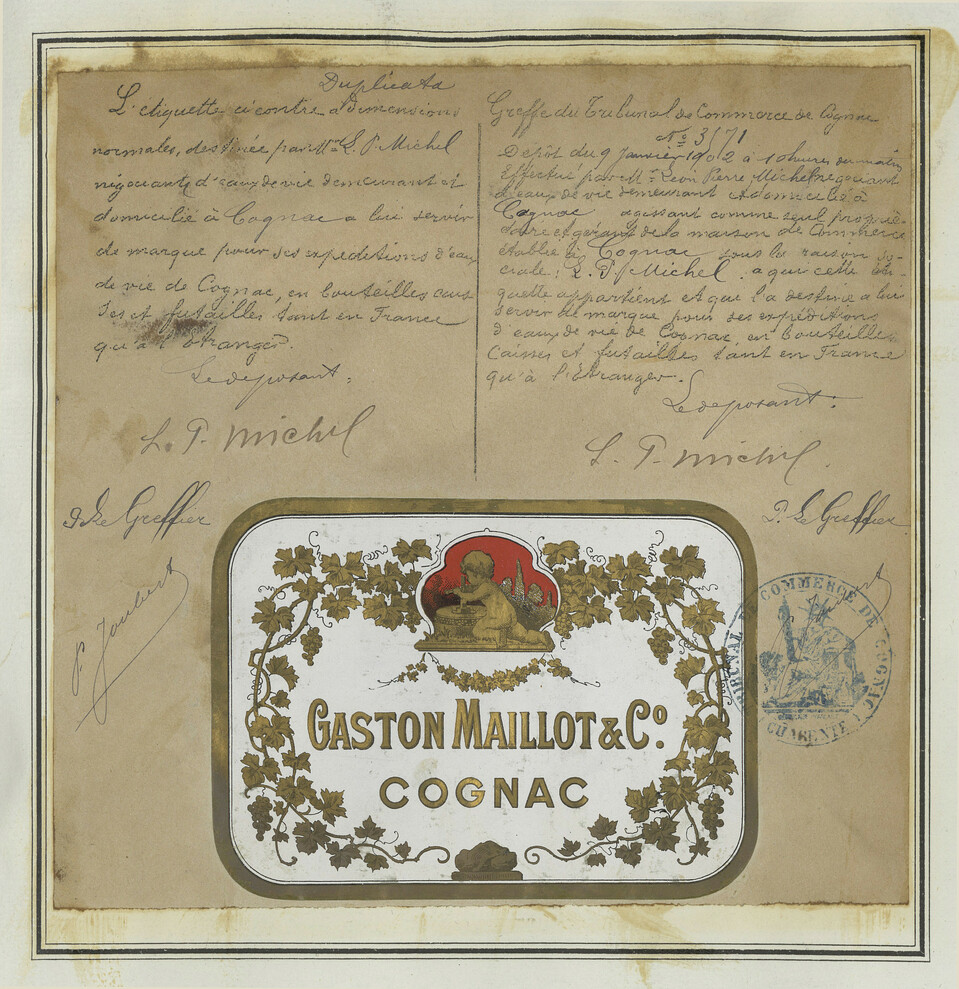 Duplicata
L'étiquette ci contre a dimensions
normales, destinée par Mr. L. P. Michel
négociant d'eaux de vie demeurant et
domicilié à Cognac a lui servir
de marque pour ses expéditions d'eaux
de vie de Cognac, en bouteilles cais
ses et futailles tant en France
qu'à l'étranger.
Le deposant:
L. P. Michel
P. Le Greffier
P. Joubert
Greffe du Tribunal de Commerce de Cognac
No 3171
Depôt du 9 Janvier 1902 à 10 heures du matin
Effectué par Mr. Léon Pierre Michel negociant
d'eaux de vie demeurant et domicilié à
Cognac agissant comme seul proprié-
taire et gérant de la maison de Commerce
établie à Cognac sous la raison so-
ciale: L. P. Michel a qui cette éti-
quette appartient et qui l'a destiné a lui
servir de marque pour ses expéditions
d'eaux de vie de Cognac, en bouteilles
caisses et futailles tant en France
qu'à l'étranger.
Le deposant:
L. P. Michel.
P. Le Greffier
TRIBUNAL DE COMMERCE DE COGNAC
CHARENTE
GASTON MAILLOT & Co.
COGNAC